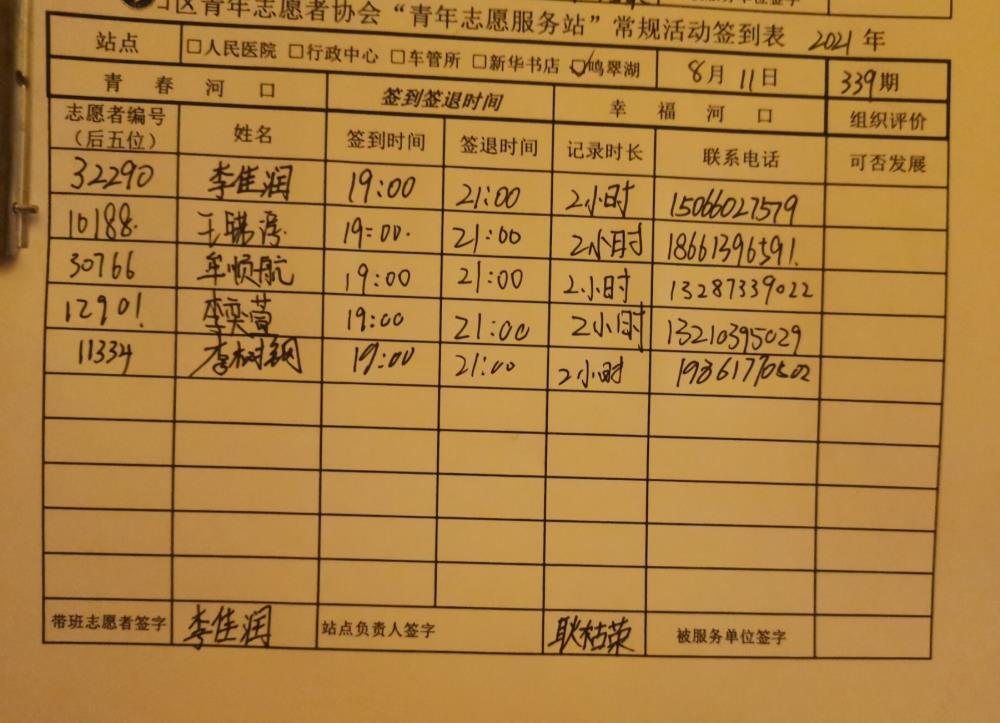 区青年志愿者协会“青年志愿服务站”常规活动签到表 2021年
站点 □人民医院 □行政中心 □车管所 □新华书店 ☑鸣翠湖 8月11日 339期
青春河口 签到签退时间 幸福河口 组织评价
志愿者编号（后五位） 姓名 签到时间 签退时间 记录时长 联系电话 可否发展
32290 李佳润 19:00 21:00 2小时 15066027579
10188. 王 19:00. 21:00 2小时 18661396591.
30766 牟顺航 19:00 21:00 2小时 13287339022
12901. 李奕萱 19:00 21:00 2小时 13210395029
11334 李树钢 19:00 21:00 2小时
带班志愿者签字 李佳润 站点负责人签字 耿枯荣 被服务单位签字